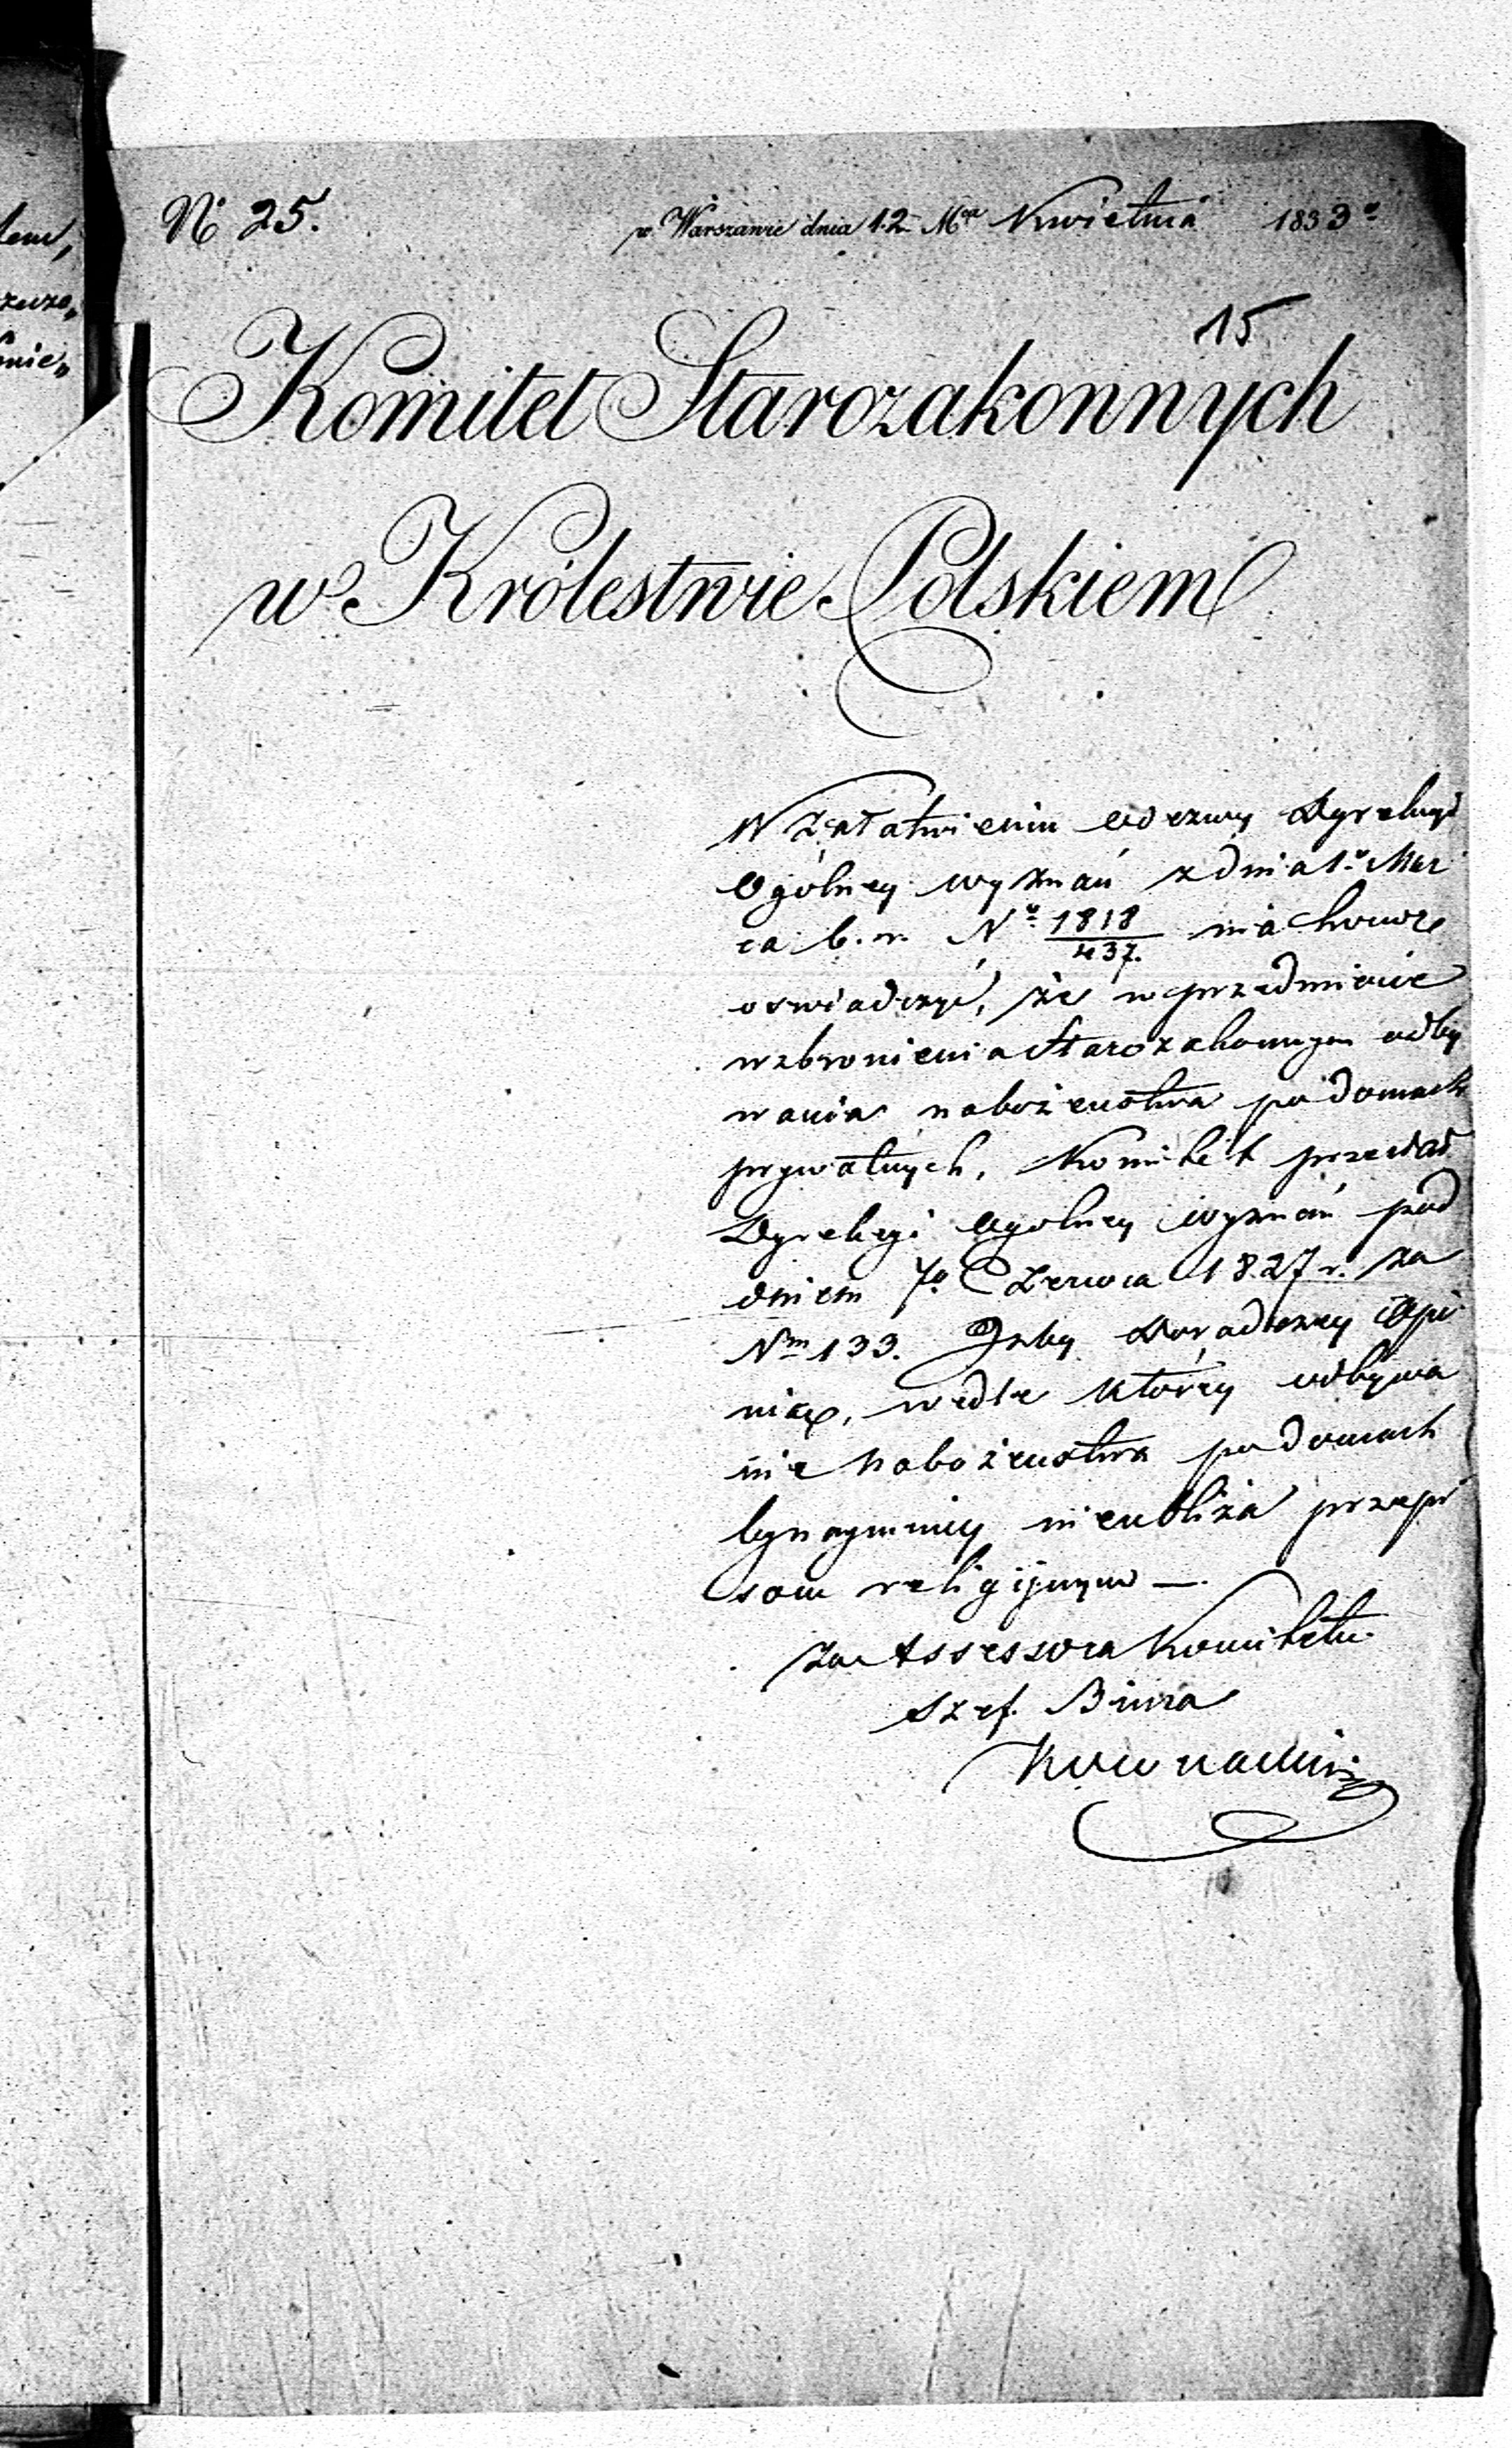 N 25.
w Warszawie dnia 12 Mca Kwietnia 1833o
15
Komitet Starozakonnych
w Królestwie Polskiem
W Załatwieniu Odezwy Dyrekcyi
Ogólney wyznań z dnia 1o Mar
ca b. r. No 1818/437. ma honor
oswiadczyć, że w przedmiocie
wzbronienia Starozakonnym odby
wania nabożenstwa po domach
prywatnych, Komitet przesłał
Dyrekcyi Ogolney wyznań pod
dniem 7o Czerwca 1827 r. za
Nm 133. Izby Doradczey Opi
nią, wedle którey odbywa
nie Nabożenstwa po domach
bynaymniey nieubliża przepi
som religijnym —.
Za Assessora Komitetu
Szef Biura